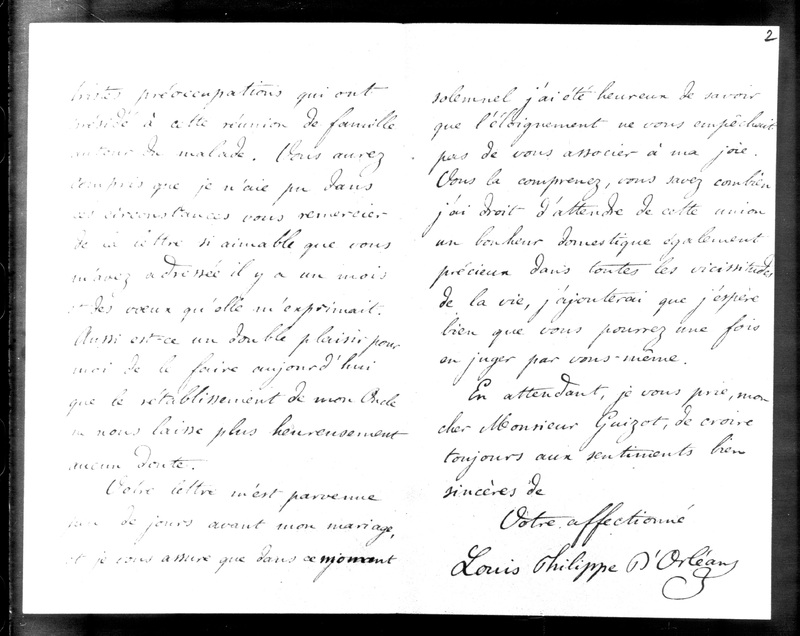 2
tristes préoccupations qui ont
présidé à cette réunion de famille
autour du malade. Vous aurez
compris que je n'aie pu dans
ces circonstances vous remercier
de la lettre si aimable que vous
m'avez adressée il y a un mois
et des vœux qu'elle m'exprimait.
Aussi est-ce un double plaisir pour
moi de le faire aujourd'hui
que le rétablissement de mon Oncle
ne nous laisse plus heureusement
aucun doute.
Votre lettre m'est parvenue
de jours avant mon mariage,
et je vous assure que dans ce moment
solemnel j'ai été heureux de savoir
que l'éloignement ne vous empêchait
pas de vous associer à ma joie.
Vous la comprenez, vous savez combien
j'ai droit d'attendre de cette union
un bonheur domestique également
précieux dans toutes les vicissitudes
de la vie, j'ajouterai que j'espère
bien que vous pourrez une fois
en juger par vous-même.
En attendant, je vous prie, mon
cher Monsieur Guizot, de croire
toujours aux sentiments bien
sincères de
Votre affectionné
Louis Philippe D'Orléans